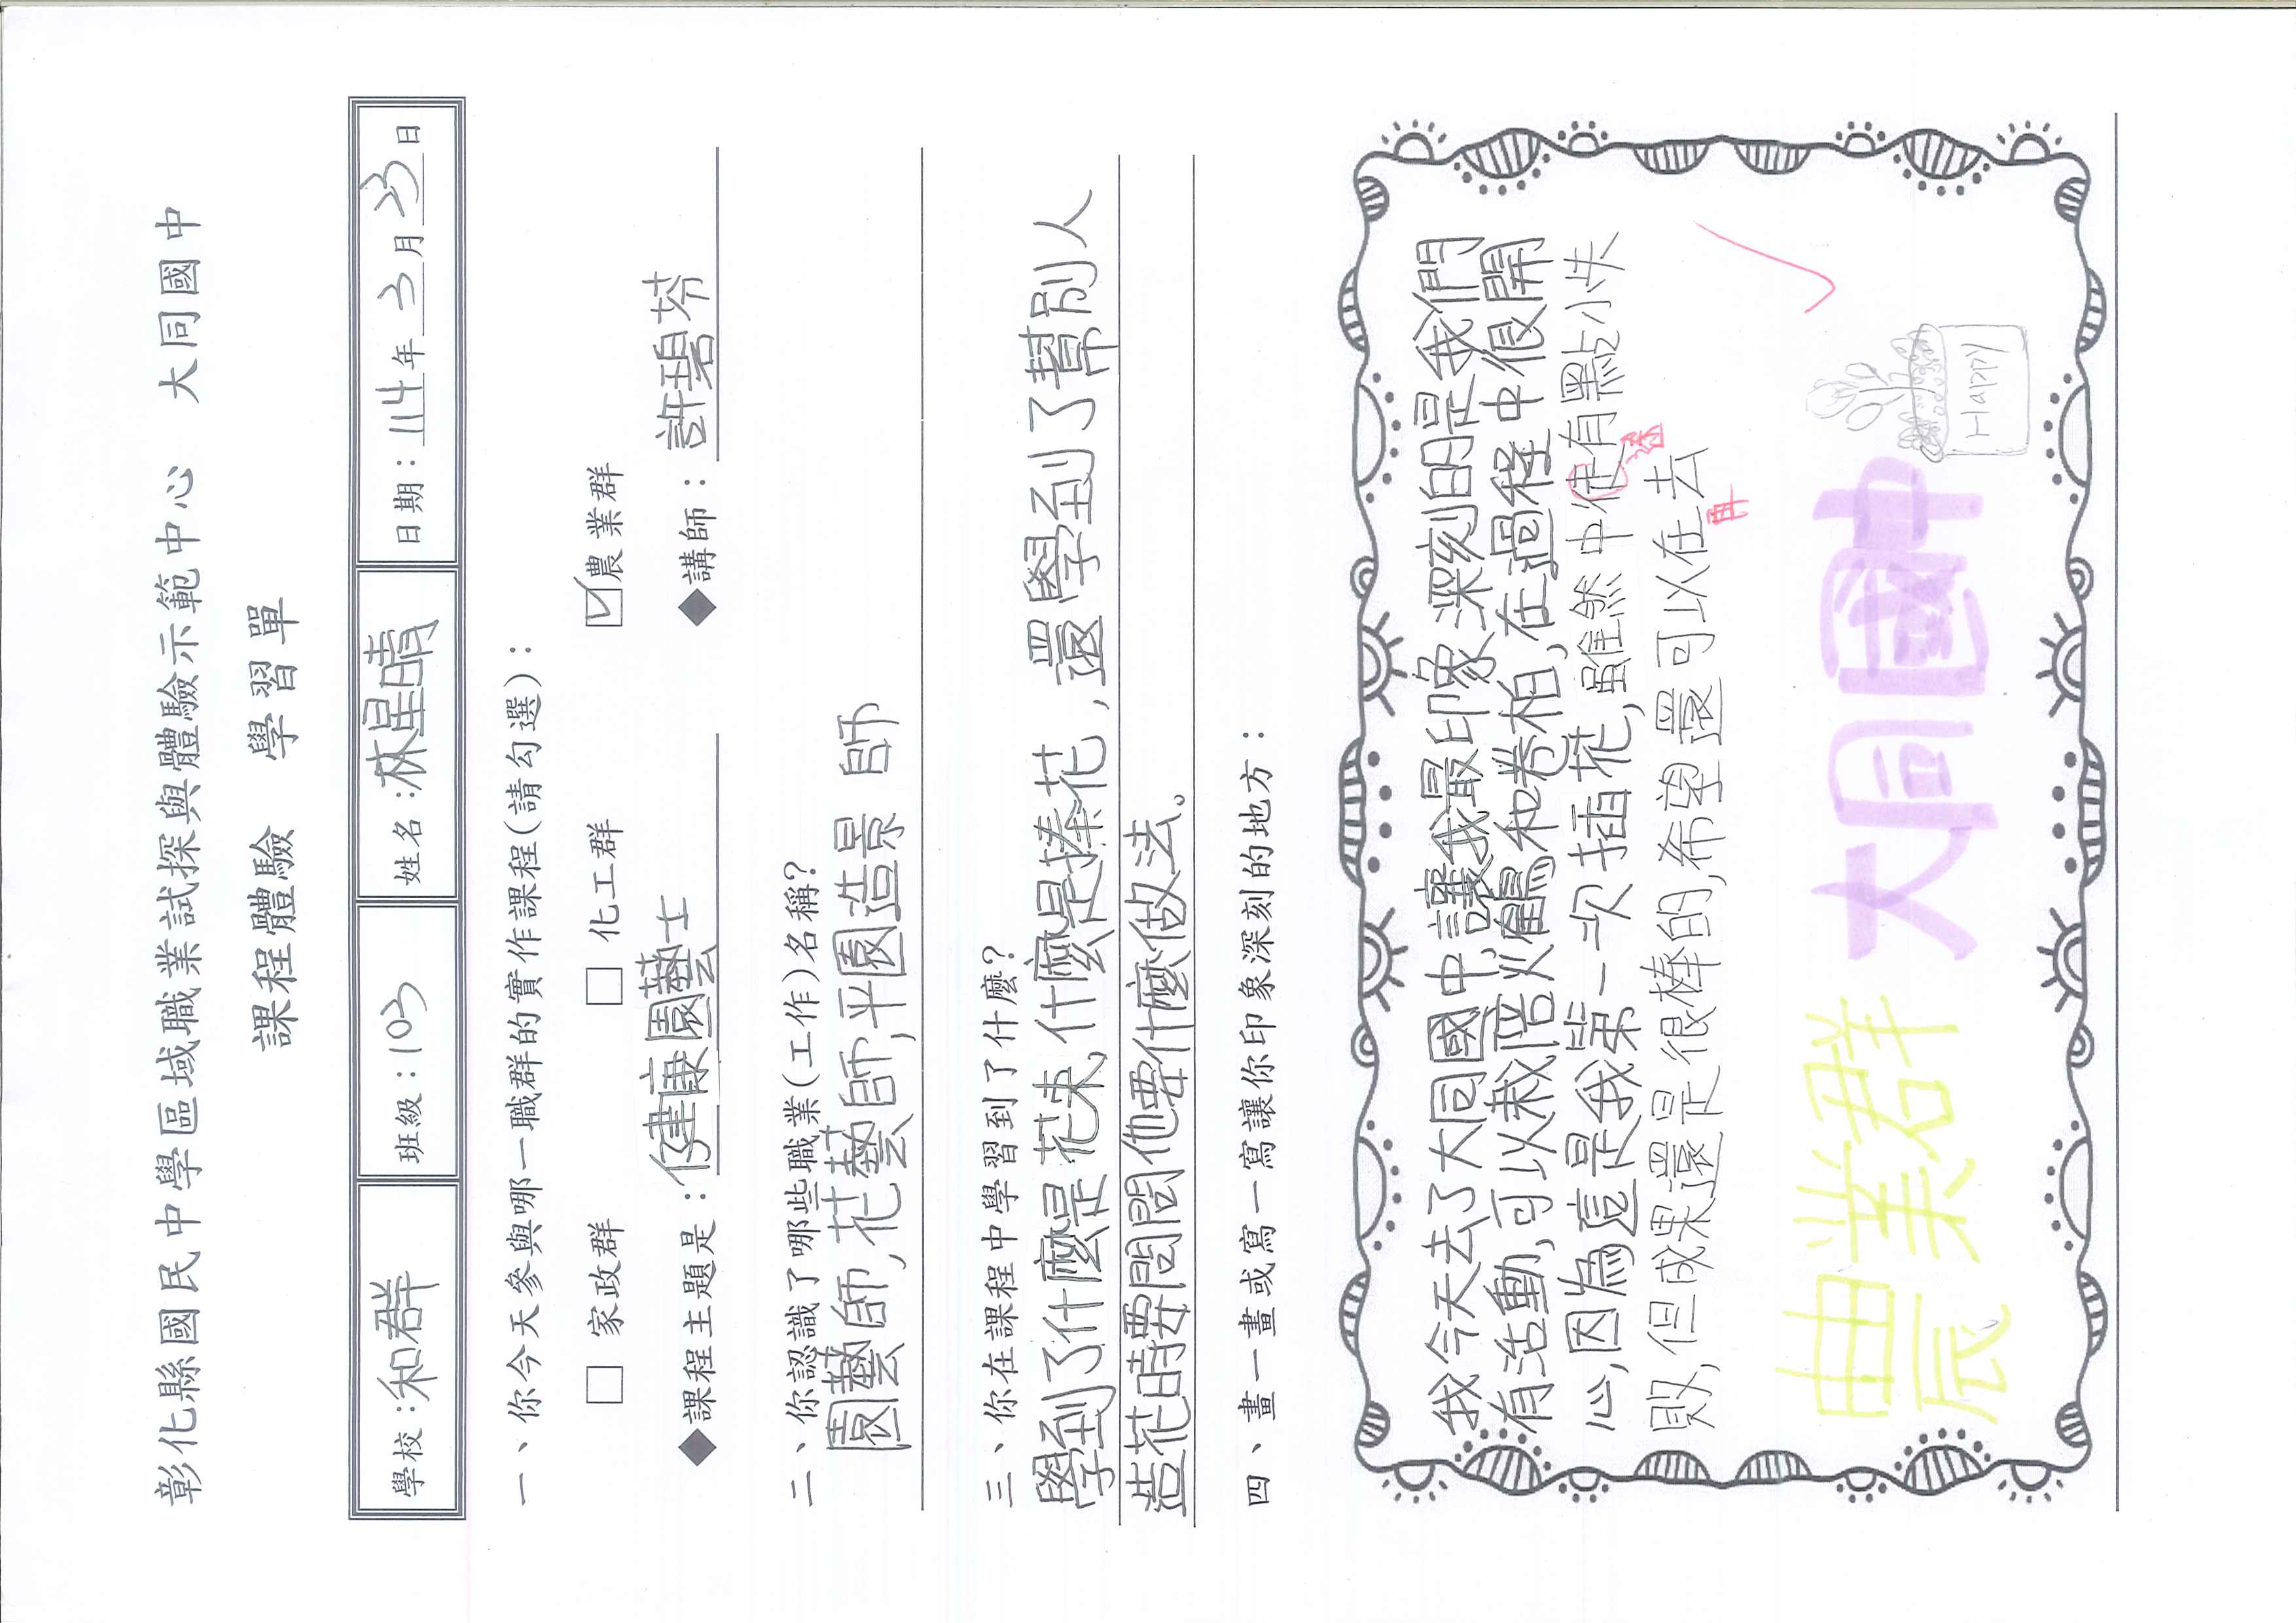 彰化縣國民中學區域職業試探與體驗示範中心 大同國中
課程體驗 學習單
學校：和群 班級：103 姓名：林星晴 日期：114年3月23日
一、你今天參與哪一職群的實作課程(請勾選)：
□ 家政群 □ 化工群 ☑農業群
◆課程主題是：健康園藝士 ◆講師：許碧芬
二、你認識了哪些職業(工作)名稱？
園藝師,花藝師,平園造景 師
三、你在課程中學習到了什麼？
學到了什麼是花束,什麼是捧花,還學到了幫別人
造花時要問問他要什麼做法。
四、畫一畫或寫一寫讓你印象深刻的地方：
我今天去了大同國中,讓我最印象深刻的是我們
有活動,可以栽培火鶴和卷柏,在過程中很開
心,因為這是我第一次插花,雖然中 有點小失
敗,但成果還是很棒的,希望還可以在去
再
農業群 大同國中
Happy